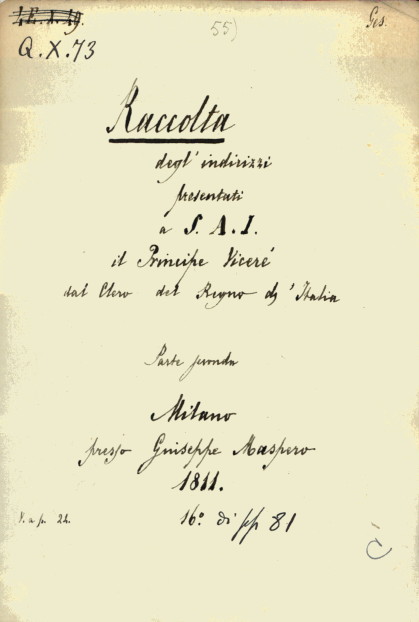 55)
Ges.
Q.X.73
Raccolta
degl' indirizzi
presentati
a S. A. I.
il Principe Viceré
dal Clero del Regno d' Italia
Parte seconda
Milano
presso Giuseppe Maspero
1811.
V. a p. 22.
16º di pp 81